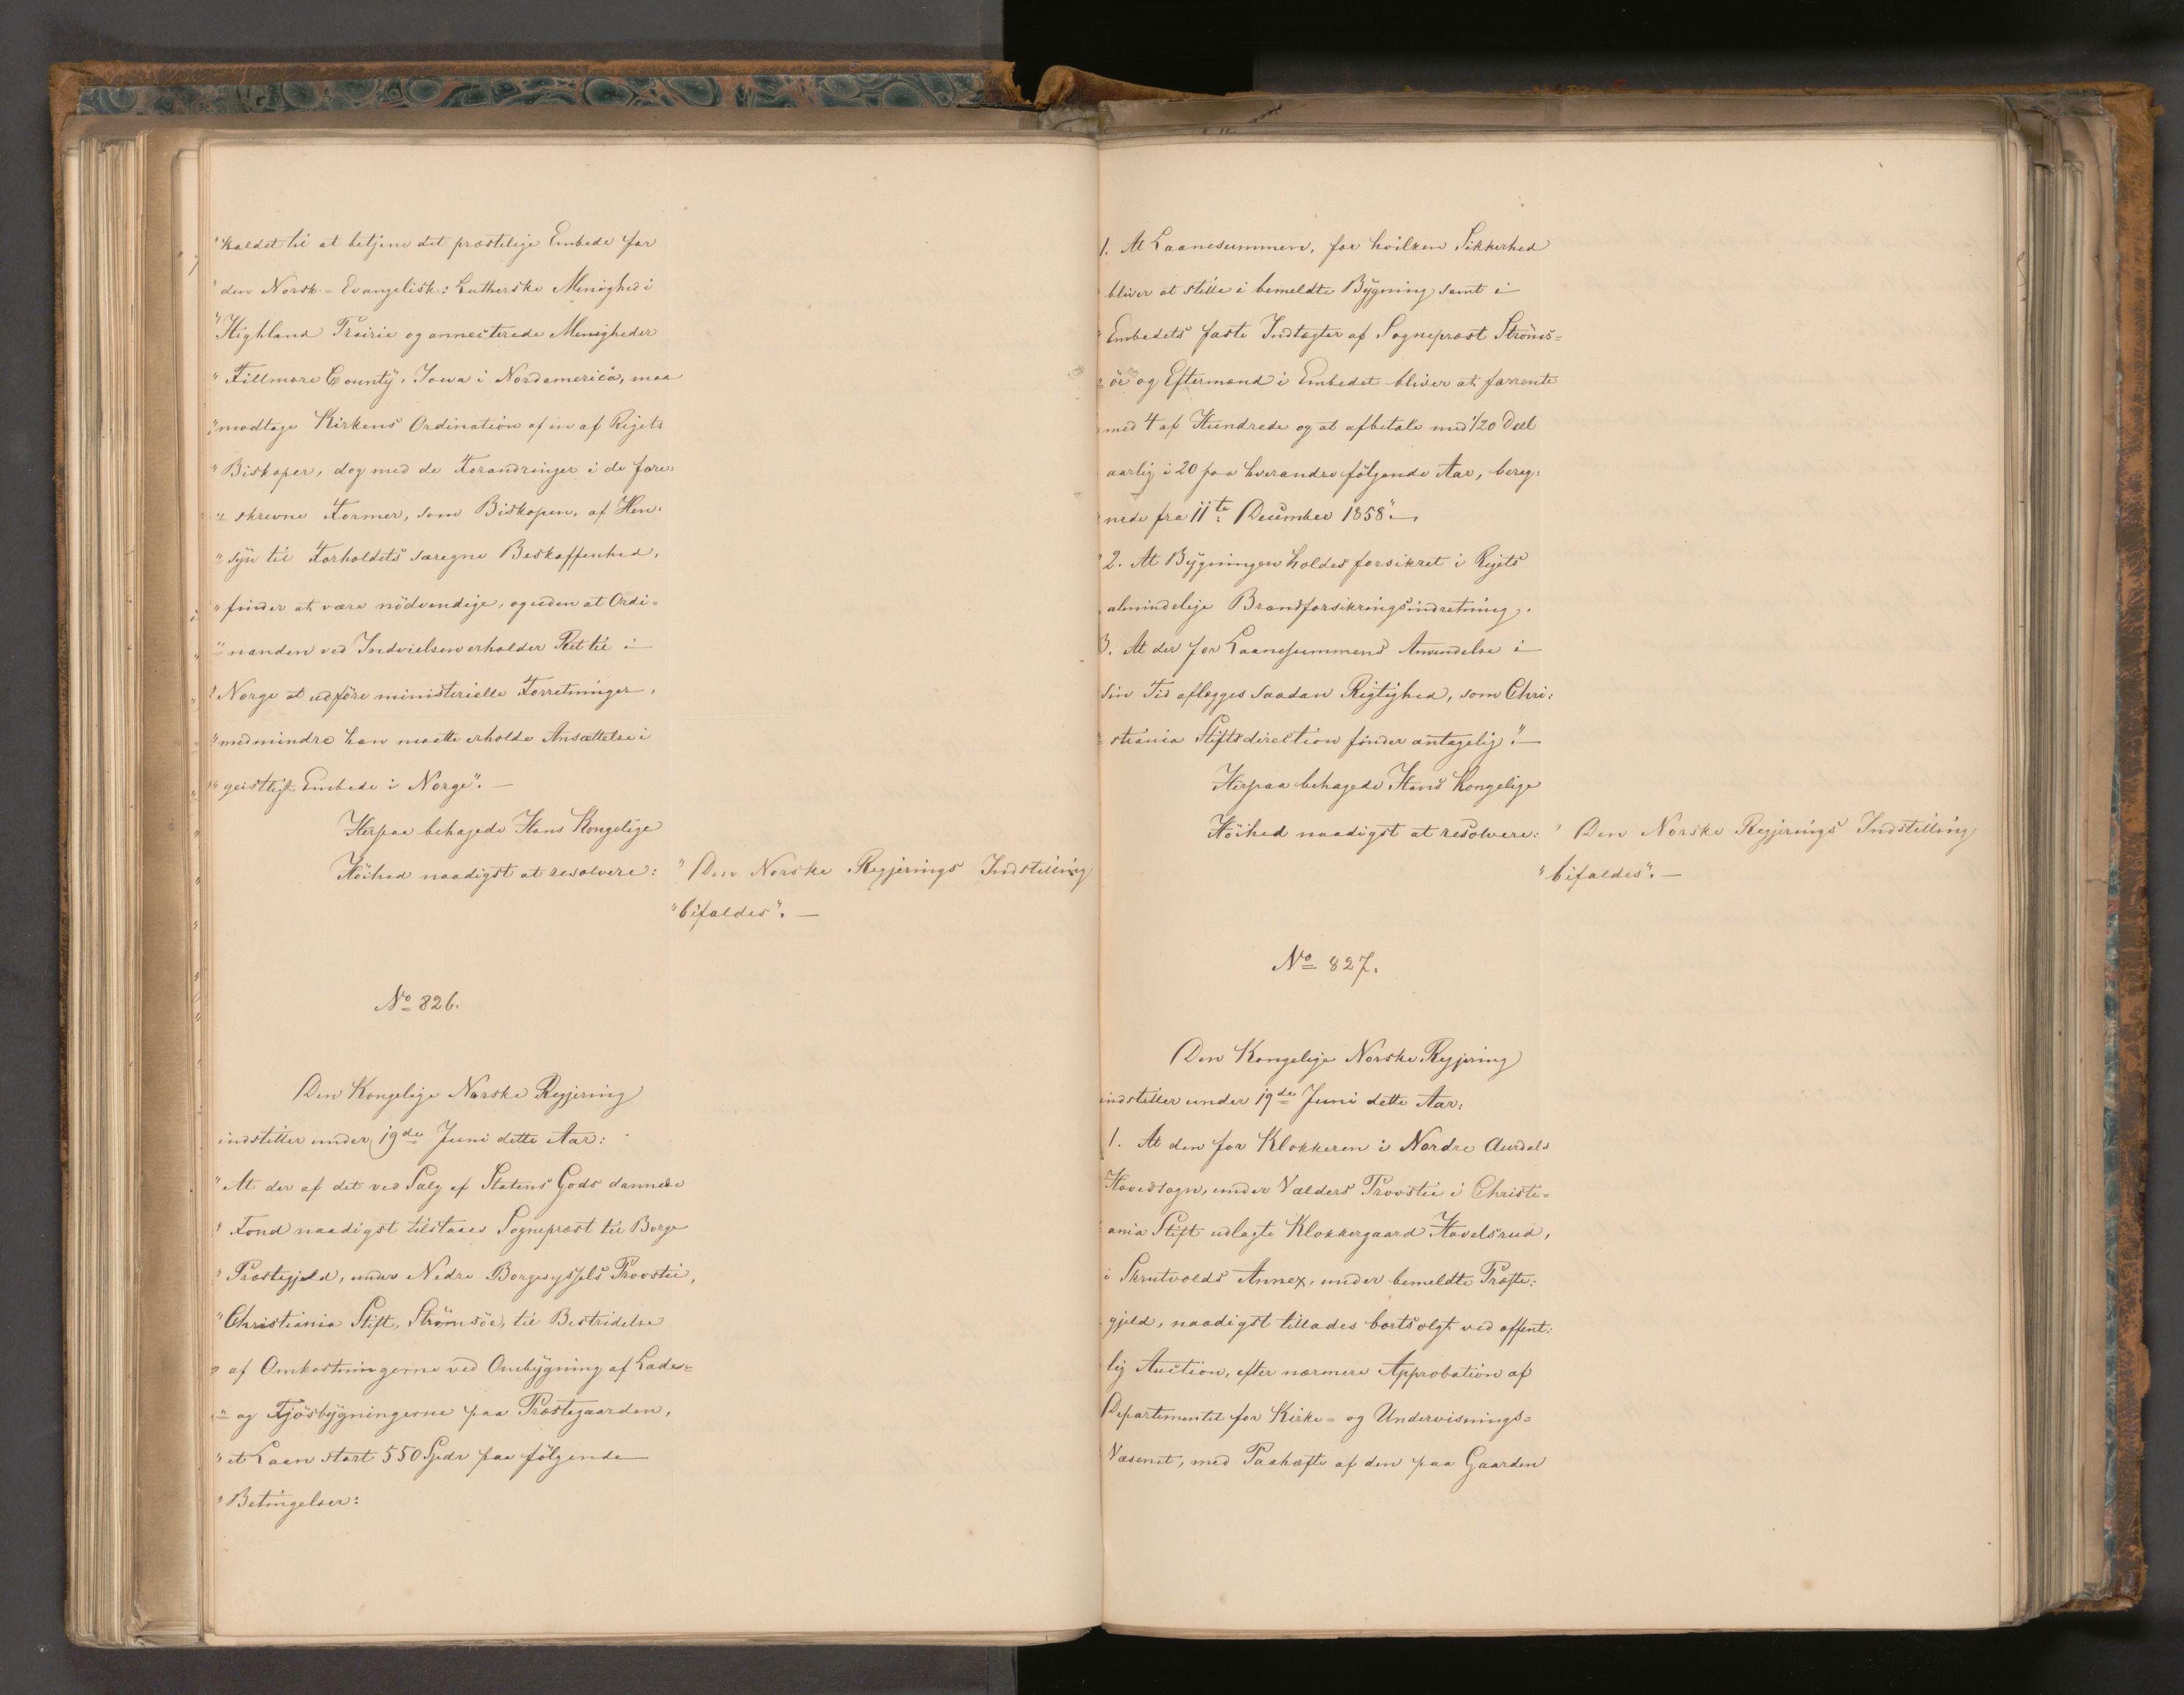 "kaldet til at betjene det præstelige Embede for
"den Norsk-Evangelisk: Lutherske Menighed i
"Highland Prairie og annecterede Menigheder
"Fillmore County, Iowa i Nordamerica, maa
"modtage Kirkens Ordination af en af Rigets
"Biskoper, dog med de Forandringer i de fore:
"skrevne Former, som Biskopen, af Hen:
"syn til Forholdets særegne Beskaffenhed,
"finder at være nödvendige, og uden at Ordi=
"nanden ved Indvielsen erholder Ret til i
"Norge at udföre ministerielle Forretninger,
"medmindre han maatte erholde Ansættelse i
"geistligt Embede i Norge". —
Herpaa behagede Hans Kongelige
Höihed naadigst at resolvere: "Den Norske Regjerings Indstilling
"bifaldes". —
No 826.
Den Kongelige Norske Regjering
indstiller under 19de Juni dette Aar:
"At der af det ved Salg af Statens Gods dannede
"Fond naadigst tilstaaes Sognepræst til Borge
"Præstegjeld, under Nedre Borgesyssels Provstie,
"Christiania Stift, Strömsöe, til Bestridelse
"af Omkostningerne ved Ombygning af Lade=
"og Fjösbygningerne paa Præstegaarden,
"et Laan stort 550 Spdr paa fölgende
"Betingelser:
1. At Laanesummen, for hvilken Sikkerhed
bliver at stille i bemeldte Bygning samt i
"Embedets faste Indtægter af Sognepræst Ströms=
"öe og Eftermænd i Embedet bliver at forrente
"med 4 af Hundrede og at afbetale med 1/20 Deel
aarlig i 20 paa hverandre fölgende Aar, bereg:
"nede fra 11te December 1858". —
"2. At Bygningen holdes forsikret i Rigets
"almindelige Brandforsikringsindretning.
3. At der for Laanesummens Anvendelse i
sin Tid aflægges saadan Rigtighed, som Chri:
"stiania Stiftsdirection finder antagelig". —
Herpaa behagede Hans Kongelige
Höihed naadigst at resolvere: "Den Norske Regjerings Indstilling
"bifaldes". —
No 827.
Den Kongelige Norske Regjering
indstiller under 19de Juni dette Aar:
1. At den for Klokkeren i Nordre Aurdals
Hovedsogn, under Valders Provstie i Christi=
ania Stift udlagte Klokkergaard Hovelsrud,
i Skrutvolds Annex, under bemeldte Præste:
gjeld, naadigst tillades bortsolgt ved offent:
lig Auction, efter nærmere Approbation af
Departementet for Kirke= og Undervisnings=
Væsenet, med Paahæfte af den paa Gaarden